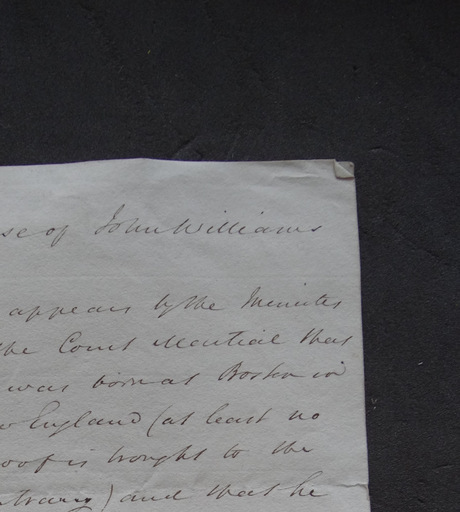 se of John Williams
appears by the Minutes
the Court Martial that
was born at Boston in
w England (at least no
roof is brought to the
ntrary) and that he